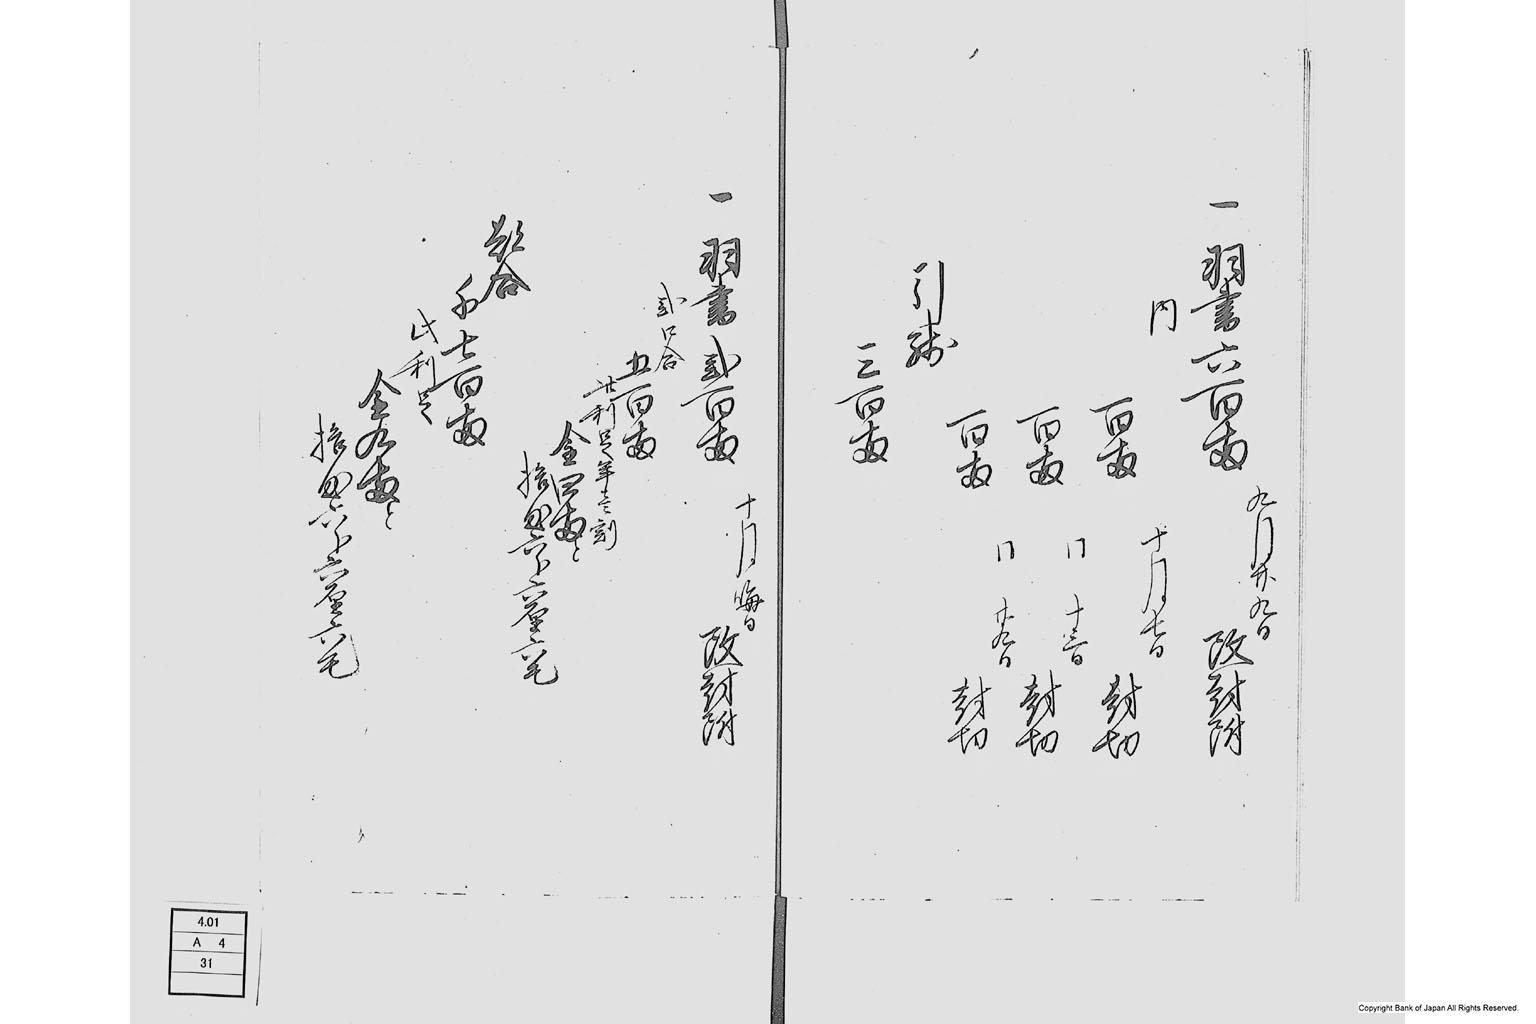 一 羽書六百両 九月廿九日 改封附
内
百両 十月七日 封切
百両 同 十三日 封切
百両 同 廿九日 封切
引残
三百両
一 羽書弐百両 十月晦日 改封附
弐口合
五百両
此利足年壱割
金四両と
拾匁六分六厘六毛
惣合
千七百両
此利足
金九両と
拾匁六分六厘六毛
4.01
A 4
31
Copyright Bank of Japan All Rights Reserved.